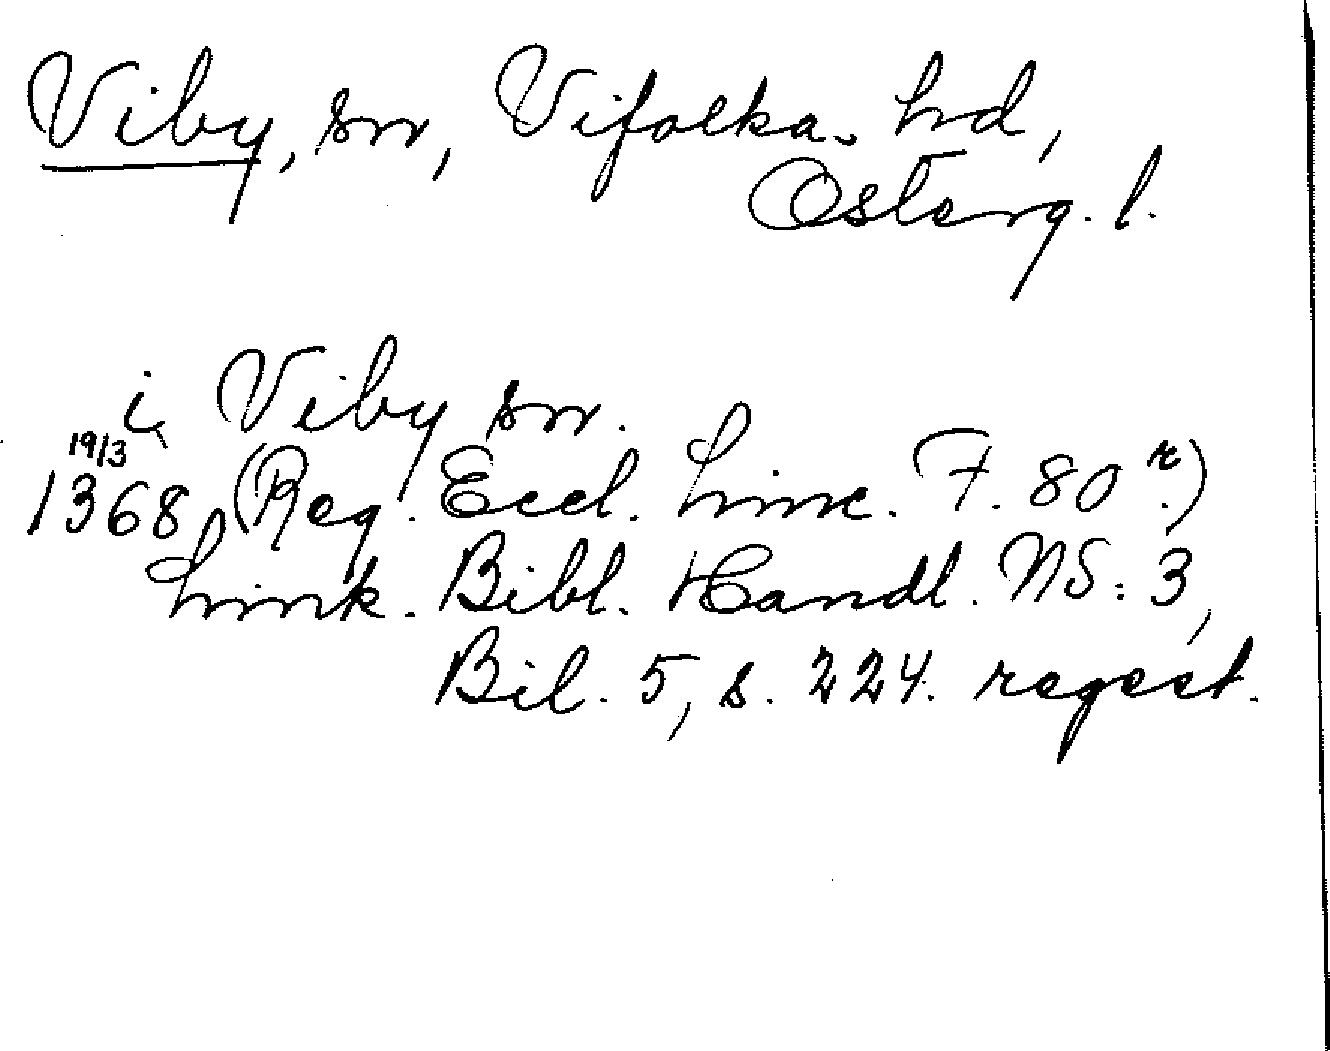 Viby, sn, Vifolka hd,
Österg. l.
i Viby sn.
19/3
1368 (Reg. Eccl. Linc. F. 80 r.)
Link. Bibl. Handl. NS: 3,
Bil. 5, s. 224. regest.